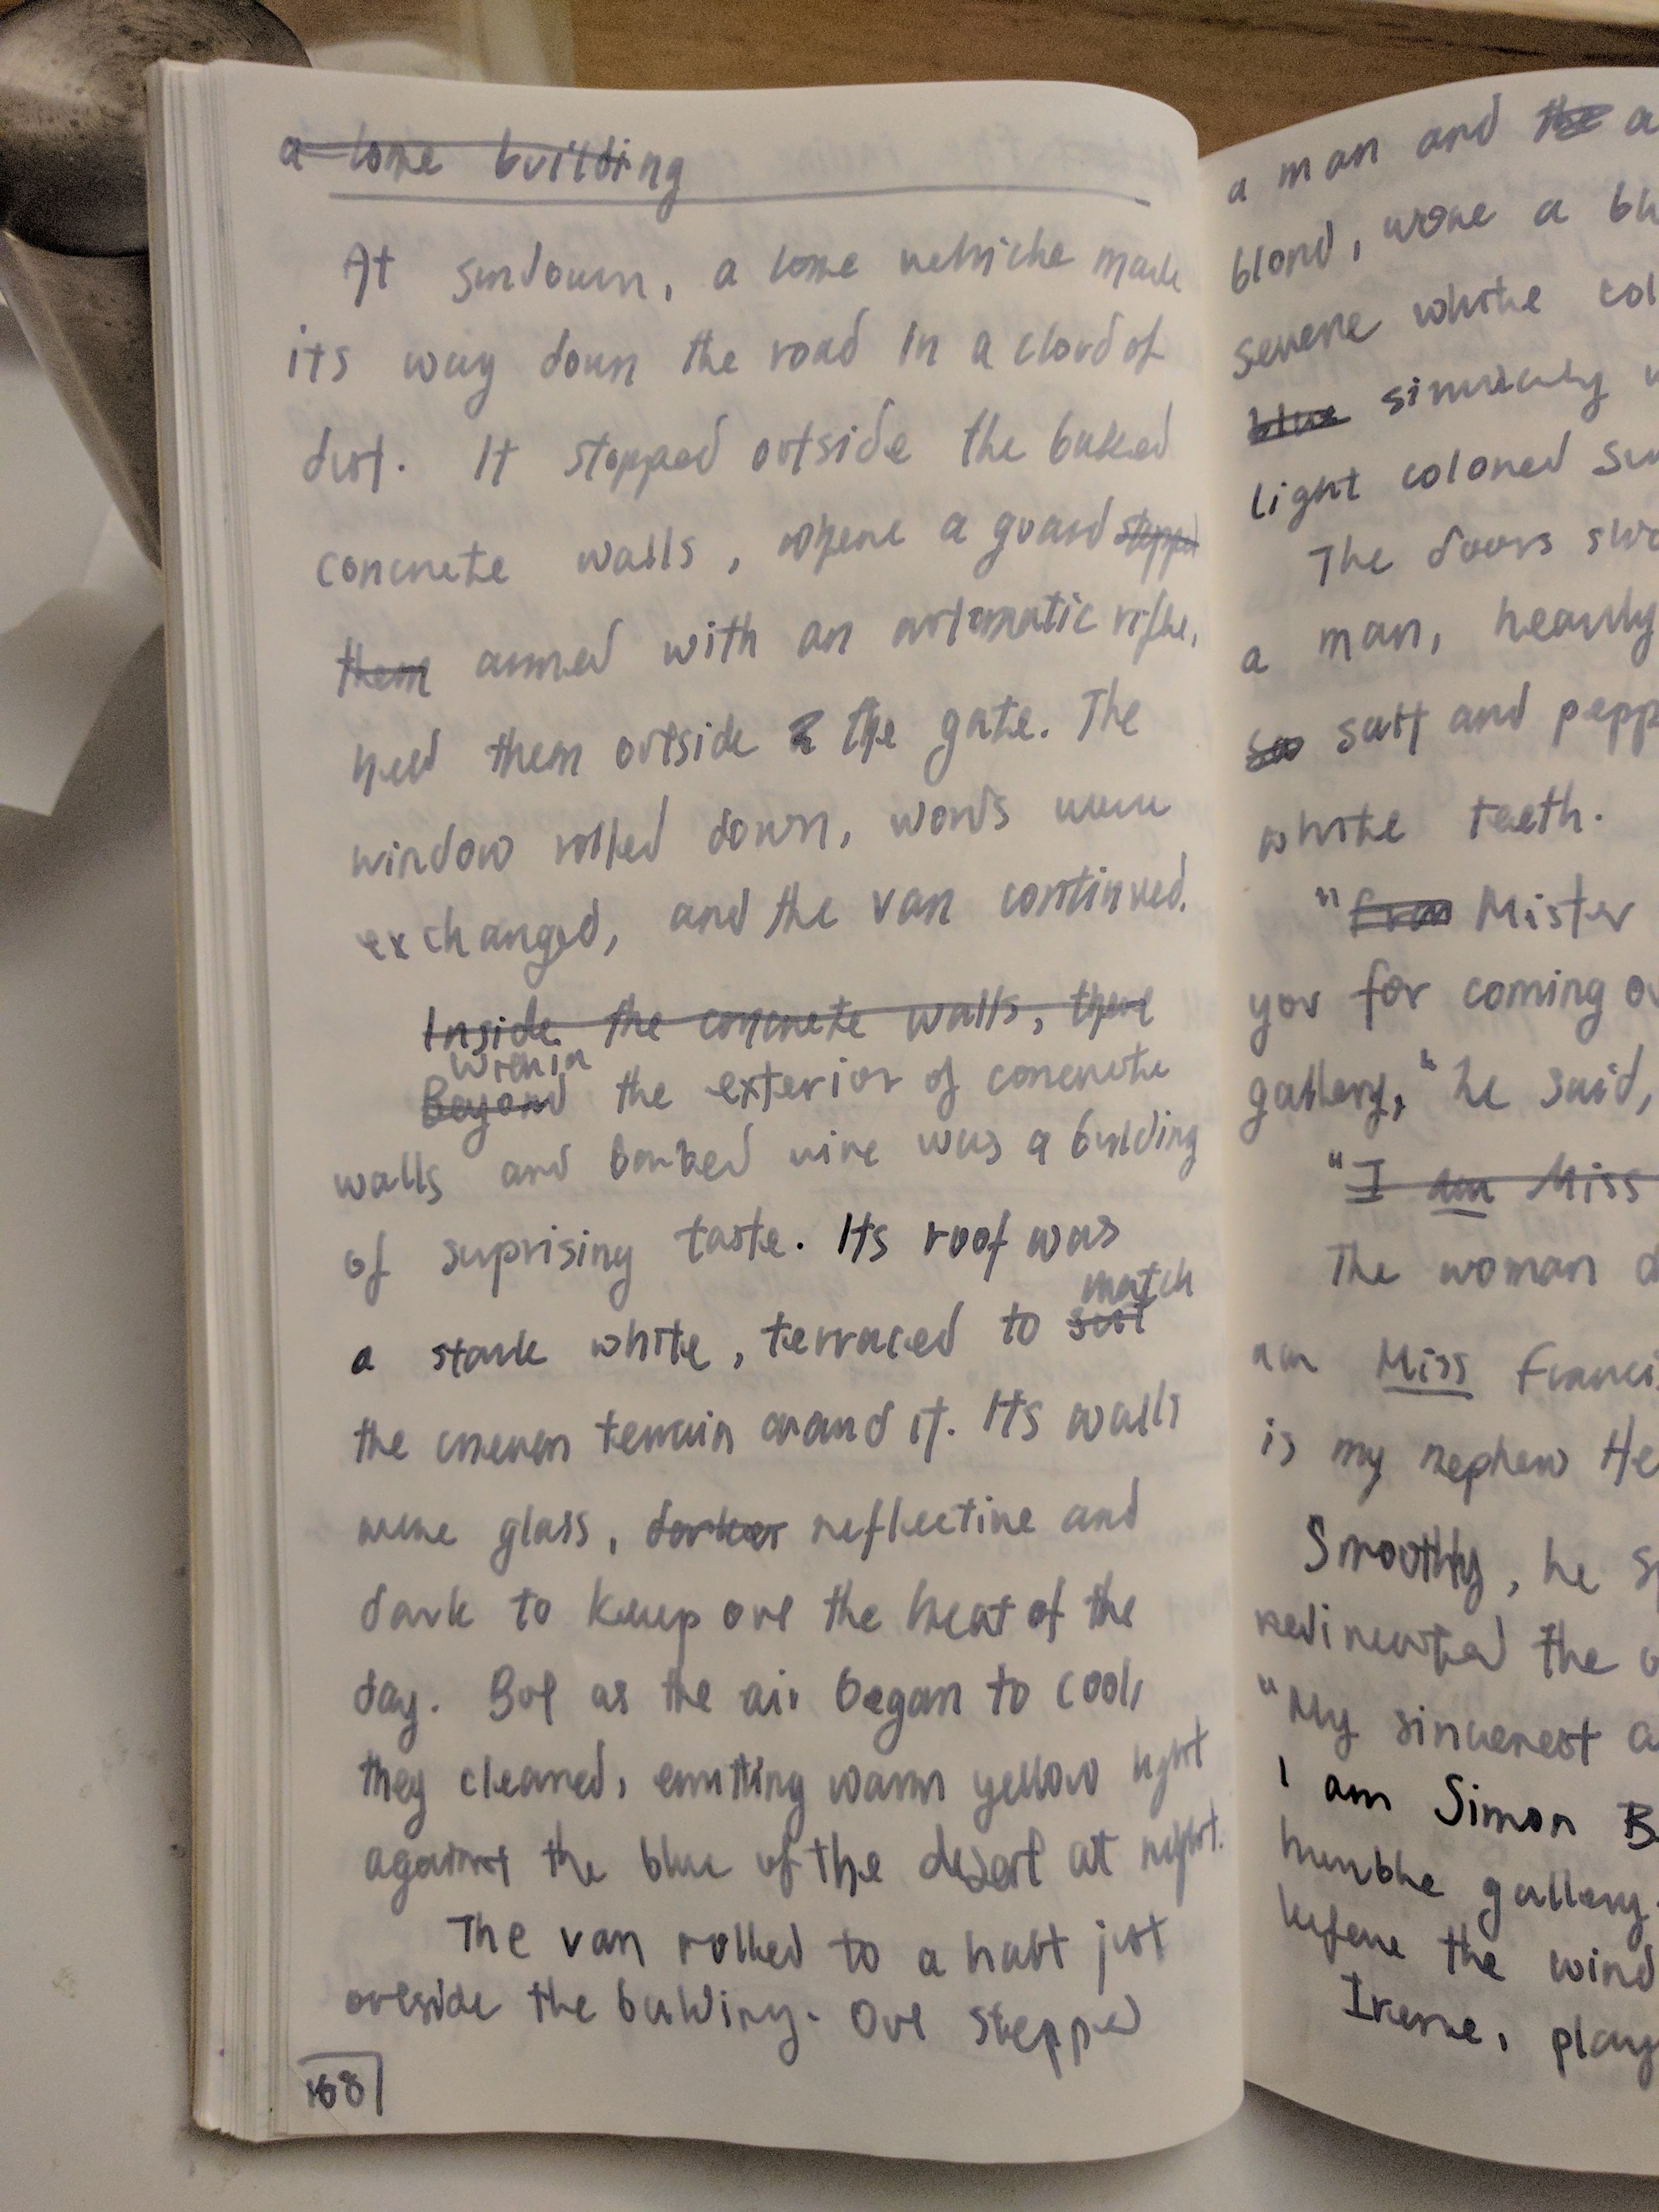 a lone building
At sundown, a lone vehicle made
its way down the road in a cloud of
dust. It stopped outside the baked
concrete walls, where a guard stepped
them armed with an automatic rifle,
held them outside the gate. The
window rolled down, words were
exchanged, and the van continued.
Inside the concrete walls, there
Within
Beyond the exterior of concrete
walls and barbed wire was a building
of surprising taste. Its roof was
match
a stark white, terraced to suit
the uneven terrain around it. Its walls
were glass, darker reflective and
dark to keep out the heat of the
day. But as the air began to cool,
they cleared, emitting warm yellow light
against the blue of the desert at night.
The van rolled to a halt just
outside the building. Out stepped
168
a man and the a
blond, wore a
severe white
blue similarly
light colored
The doors
a man, heavily
so salt and
white teeth.
" Mister
you for coming
gallery," he said,
"I am Miss
The woman
am Miss
is my nephew
Smoothly, he
redirected the
"My sincerest
I am Simon B
humble gallery.
before the wind
Irene,